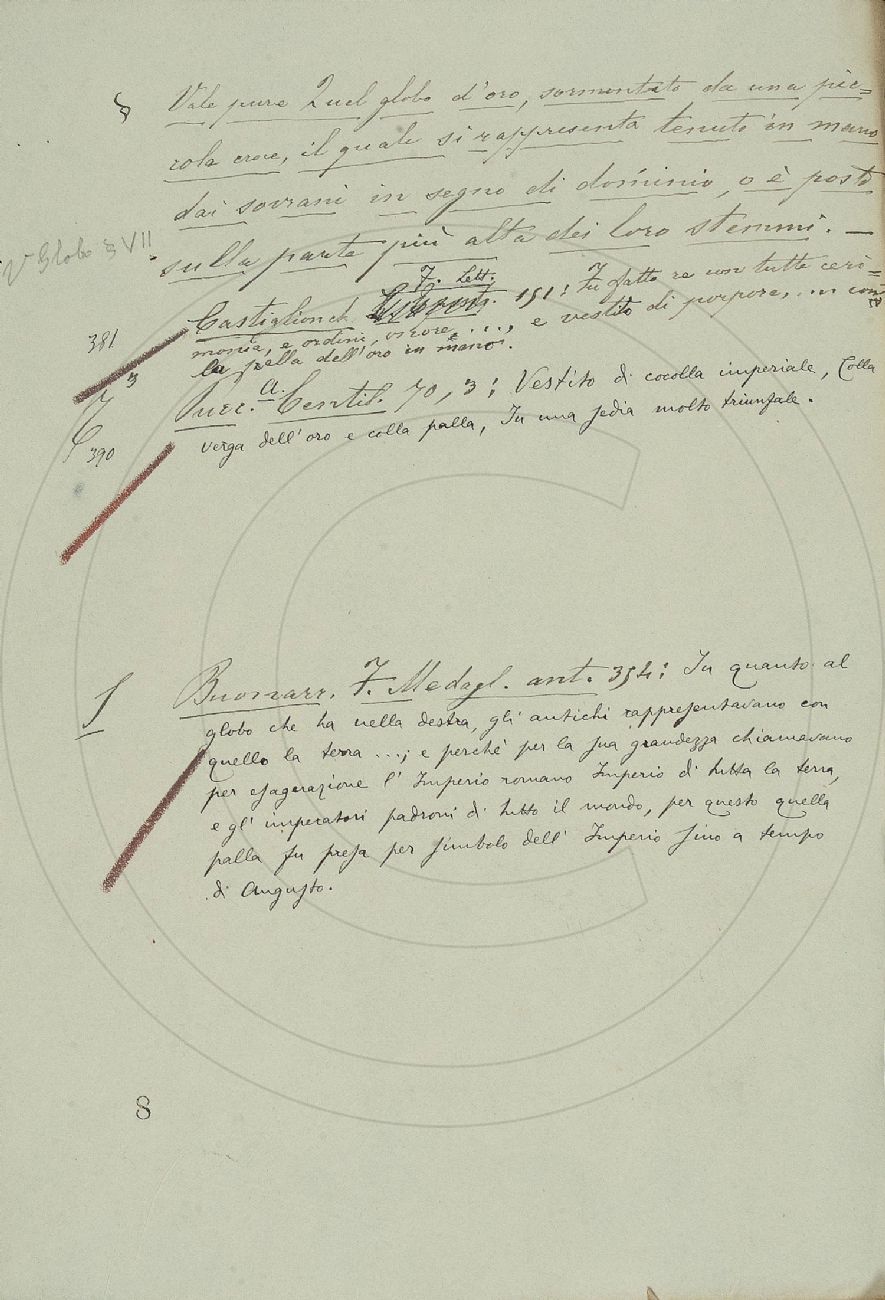 § Vale pure Quel globo d'oro, sormontato da una pic=
cola croce, il quale si rappresenta tenuto in mano
dai sovrani in segno di dominio, o è posto
V Globo § VII
sulla parte più alta dei loro stemmi. —
F. Lett.
Castiglionch. 151: Fu fatto re con tutte ceri=
381
monia, e ordini, onore, ..., e vestito di porpore, .. in con
la palla dell'oro in mano.
3
Pucc. A. Centil. 70, 3: Vestito di cocolla imperiale, Colla
390
verga dell'oro e colla palla, In una sedia molto triunfale.
Buonarr. F. Medagl. ant. 354: In quanto al
globo che ha nella destra, gli antichi rappresentavano con
quello la terra ...; e perchè per la sua grandezza chiamavano
per esagerazione l'Imperio romano Imperio di tutta la terra,
e gl'imperatori padroni di tutto il mondo, per questo quella
palla fu presa per simbolo dell'Imperio sino a tempo
di Augusto.
8